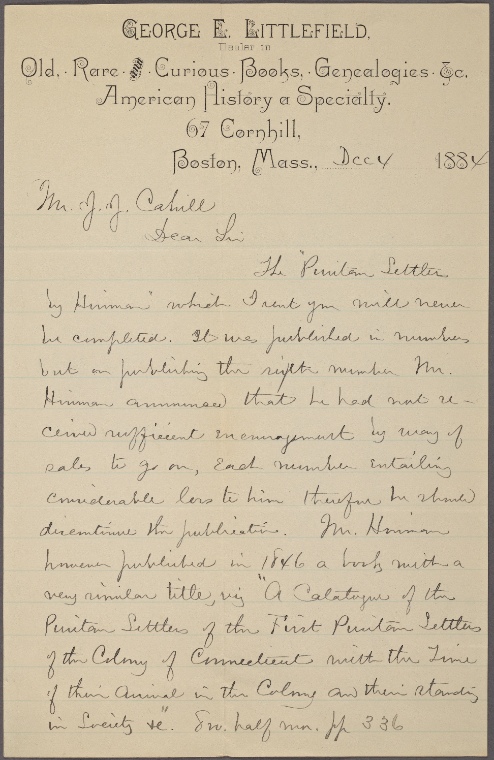 GEORGE E. LITTLEFIELD,
Dealer in
Old, Rare and Curious Books, Genealogies &c.
American History a Specialty.
67 Cornhill,
Boston, Mass., Dec 4 1884
Mr. J. J. Cahill
Dear Sir
The "Puritan Settlers
by Hinman" which I sent you will never
be completed. It was published in numbers
but on publishing the number Mr.
Hinman announced that he had not re-
ceived sufficient encouragement by way of
sales to go on, Each number entailing
considerable loss to him therefore he should
discontinue the publication. Mr. Hinman
however published in 1846 a book with a
very similar title, viz "A Catalogue of the
Puritan Settlers of the First Puritan Settlers
of the Colony of Connecticut with the Time
of their Arrival in the Colony and their standing
in Society &c". 8vo. half mor. pp 336